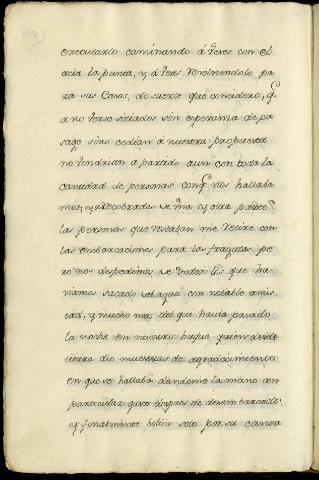 executarlo caminando á veces con el
acia la punta, y á veces volviendolo pa
ra sus Casas, de suerte que considero, q
a no verse sitiados sin esperanza de pa
sage sino cedian á nuestra propuesta
no vendrian a partido aun con toda la
cantidad de personas con q nos hallaba
mos; y recobradas de una y otra parte
las personas que restaban me retire con
las embarcaciones para las fragatas pe
ro nos despedimos de todos los que ha
viamos sacado del agua con notable amis
tad, y mucho mas del que havia pasado
la noche en nuestro buque, quien desde
tierra dio muestras de agradecimiento
en que se hallaba dandome la mano con
particular gusto despues de desembarcado:
y finalmente bolvio solo por su canoa